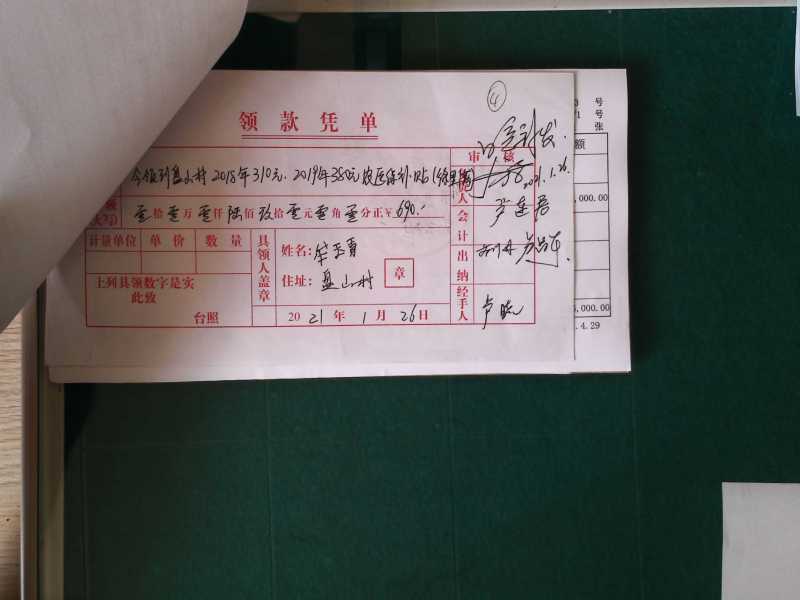 ④
领款凭单
今领到盘山村2018年310元.2019年380元按医保补.贴
审核
2021.1.26.
大写) 零拾零万零仟陆佰玖拾零元零角零分正¥690.-
计量单位 单价 数量
具领人盖章
姓名:
住址:盘山村
章
会计
出纳
经手人
上列具领数字是实
此致
台照
2021年1月26日
号
号
张
额
,000.00
,000.00
.4.29